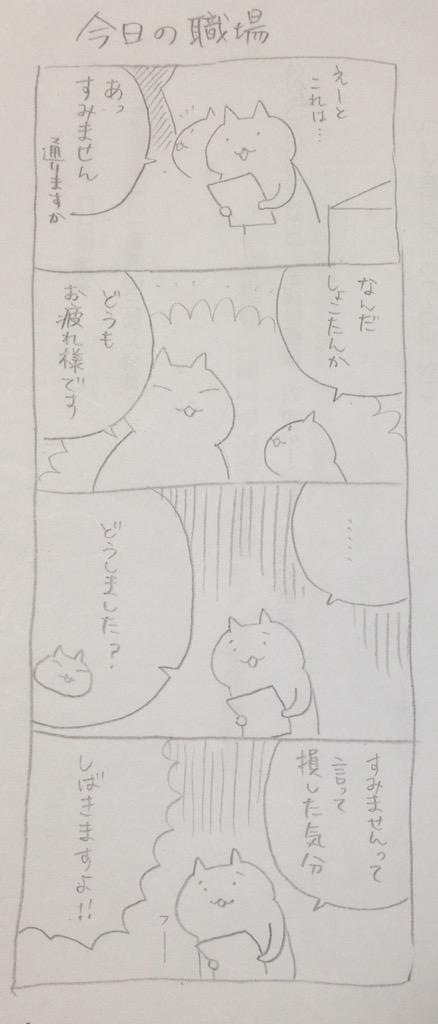 今日の職場
えーと
これは…
あっ
すみません
通りますか
なんだ
しょこたんか
どうも
お疲れ様です
……
どうしました？
すみませんって
言って
損した気分
しばきますよ!!